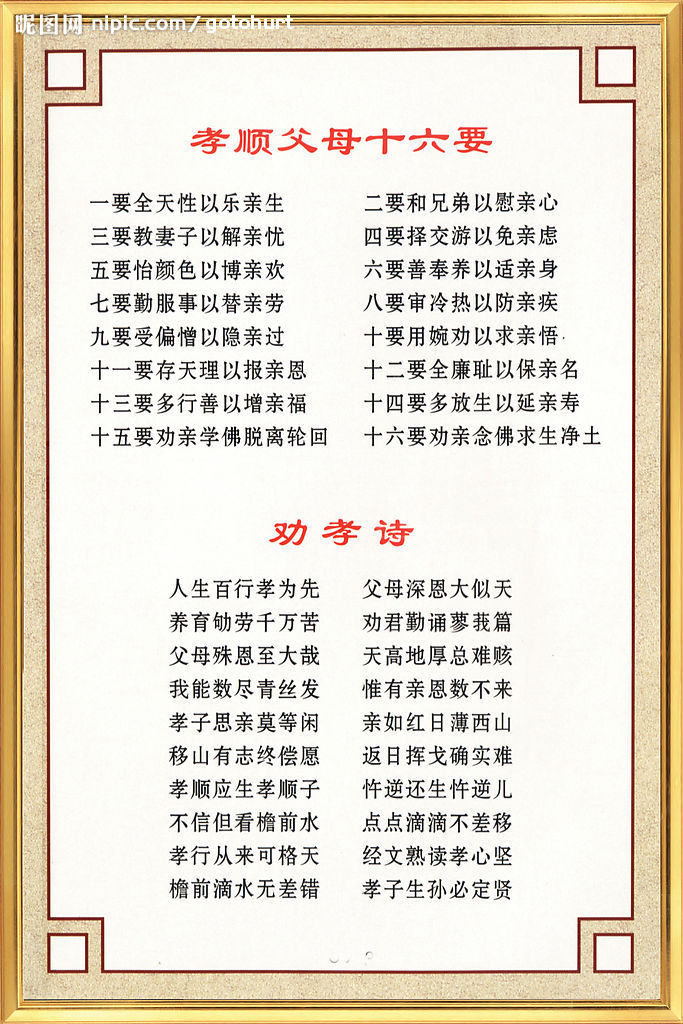 昵图网 nipic.com/gotohurt
孝顺父母十六要
一要全天性以乐亲生 二要和兄弟以慰亲心
三要教妻子以解亲忧 四要择交游以免亲虑
五要怡颜色以博亲欢 六要善奉养以适亲身
七要勤服事以替亲劳 八要审冷热以防亲疾
九要受偏憎以隐亲过 十要用婉劝以求亲悟
十一要存天理以报亲恩 十二要全廉耻以保亲名
十三要多行善以增亲福 十四要多放生以延亲寿
十五要劝亲学佛脱离轮回 十六要劝亲念佛求生净土
劝孝诗
人生百行孝为先 父母深恩大似天
养育劬劳千万苦 劝君勤诵蓼莪篇
父母殊恩至大哉 天高地厚总难赅
我能数尽青丝发 惟有亲恩数不来
孝子思亲莫等闲 亲如红日薄西山
移山有志终偿愿 返日挥戈确实难
孝顺应生孝顺子 忤逆还生忤逆儿
不信但看檐前水 点点滴滴不差移
孝行从来可格天 经文熟读孝心坚
檐前滴水无差错 孝子生孙必定贤